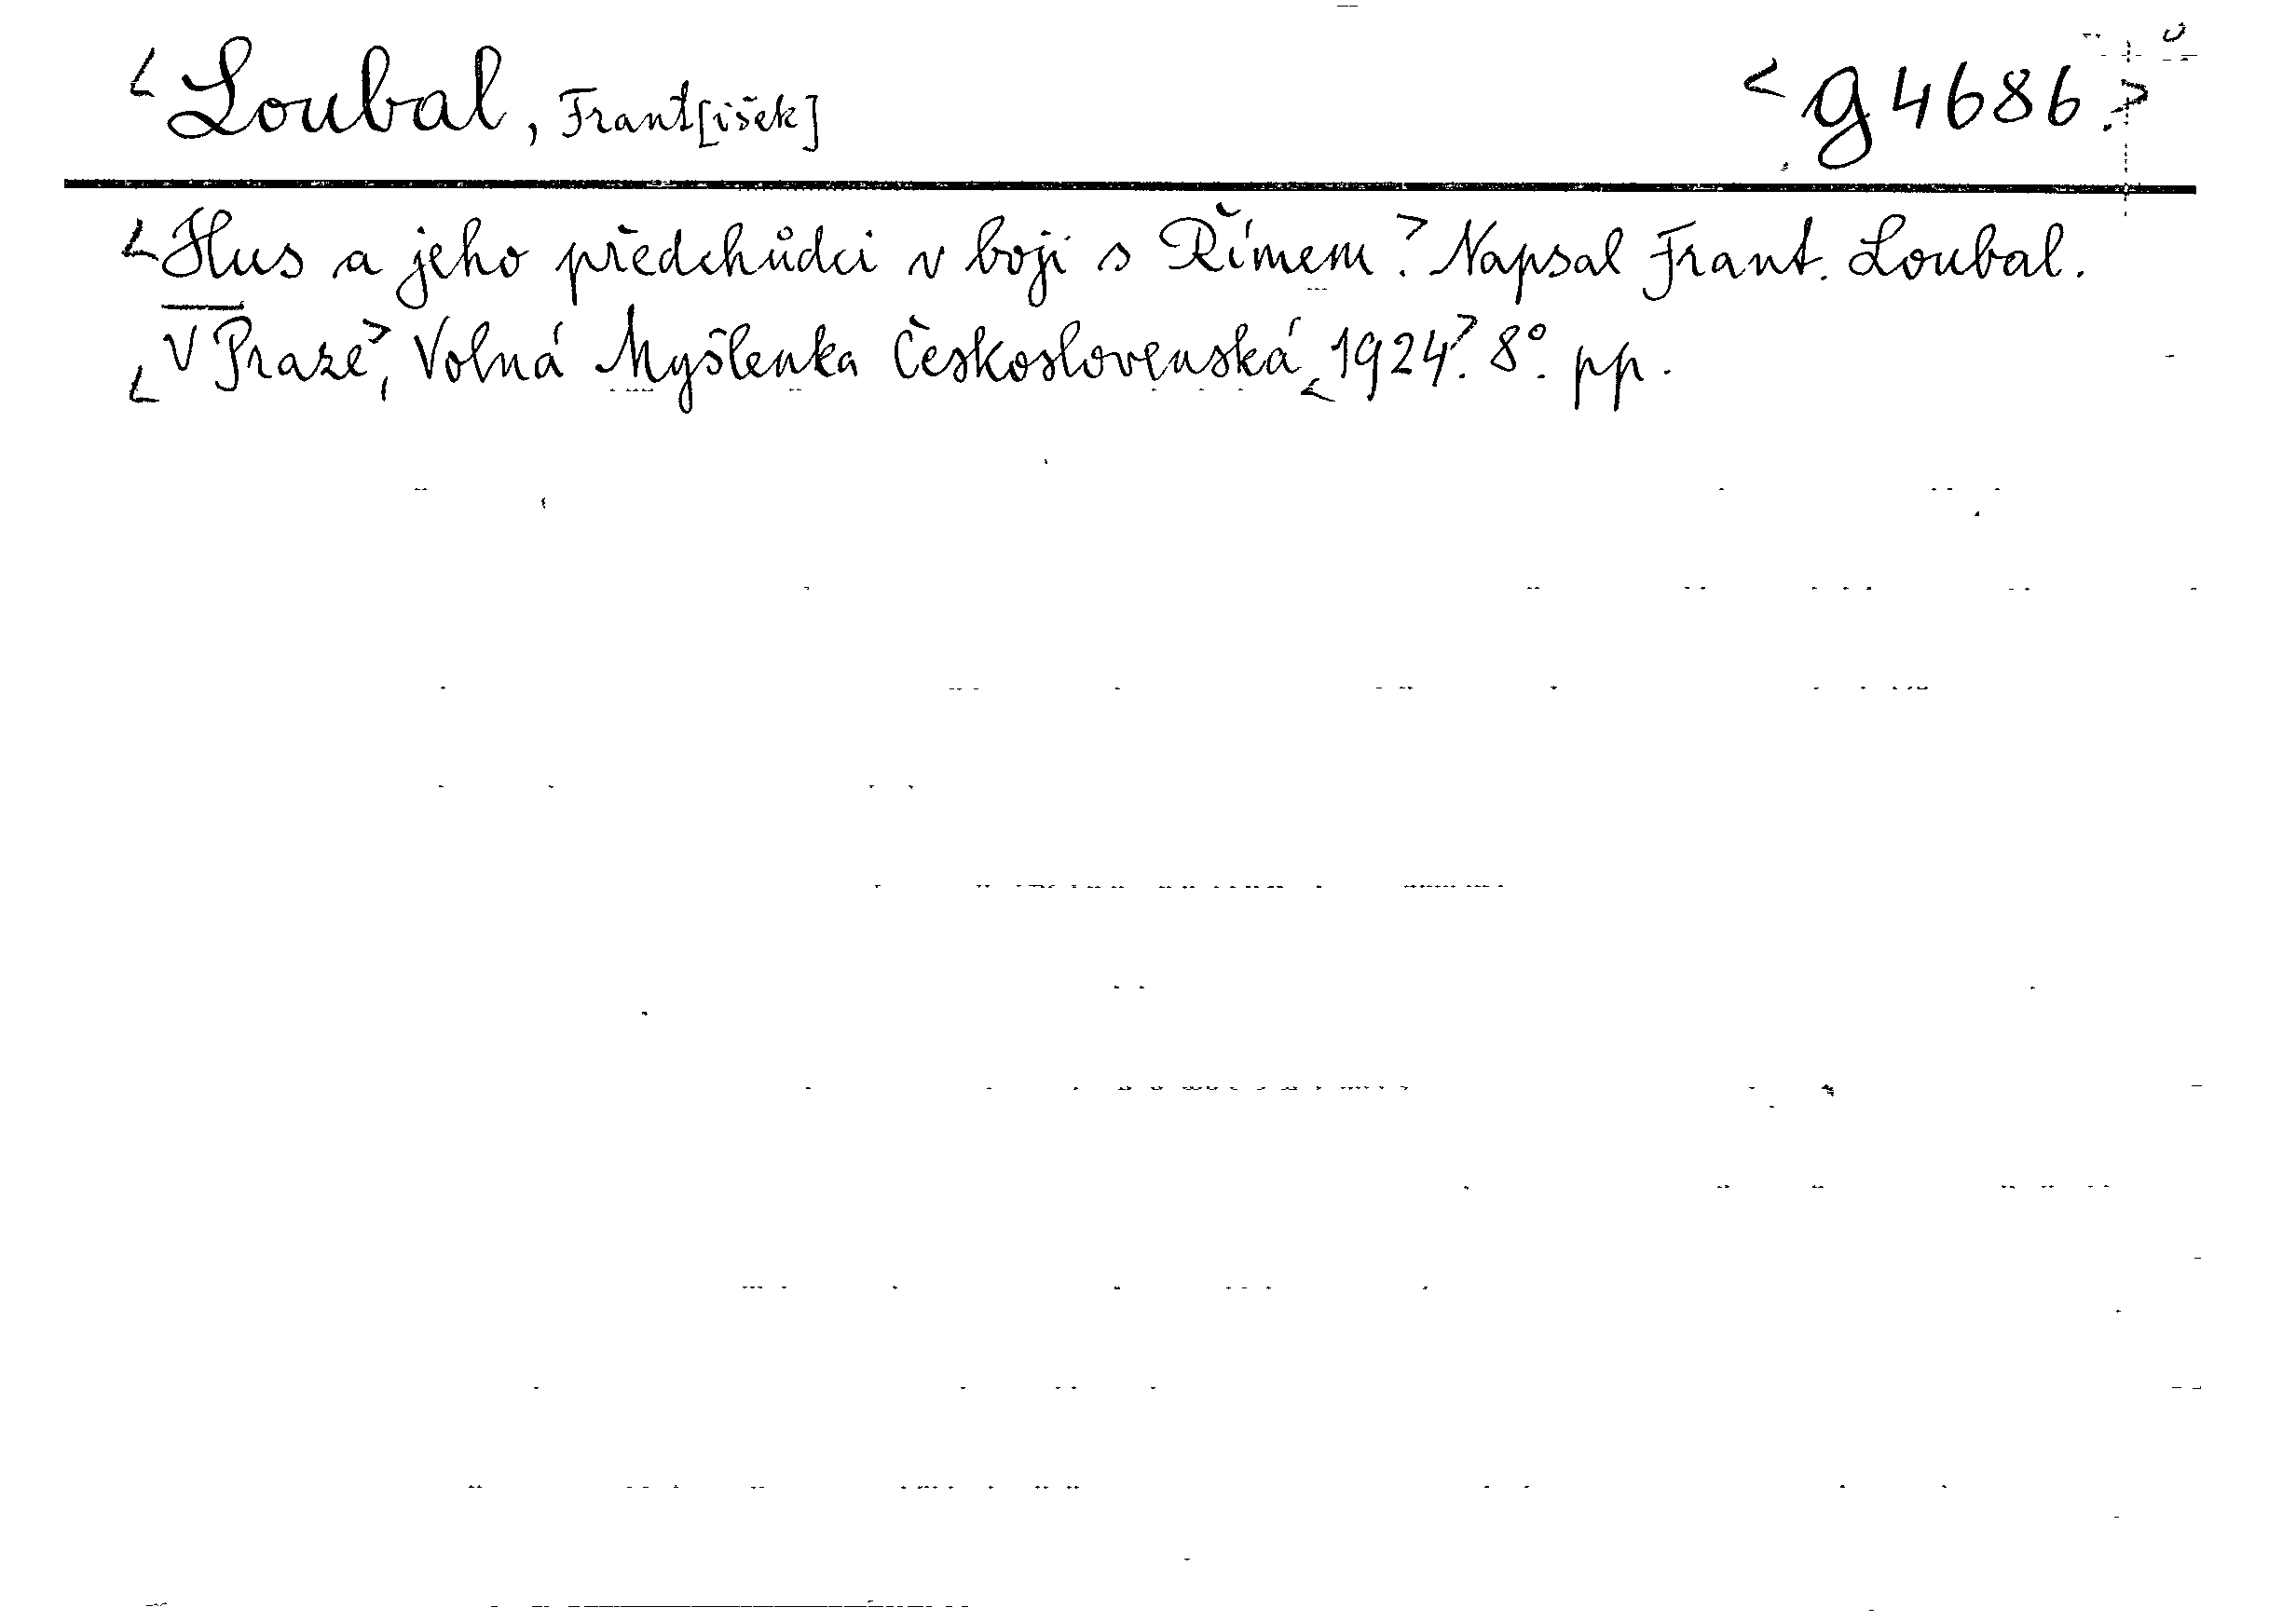 <Loubal, Frant[išek] <g 4686.>
<Hus a jeho předchůdci v boji s Římem>. Napsal Frant. Loubal.
<V Praze>, Volná Myšlenka Československá, <1924>. 8°. pp.